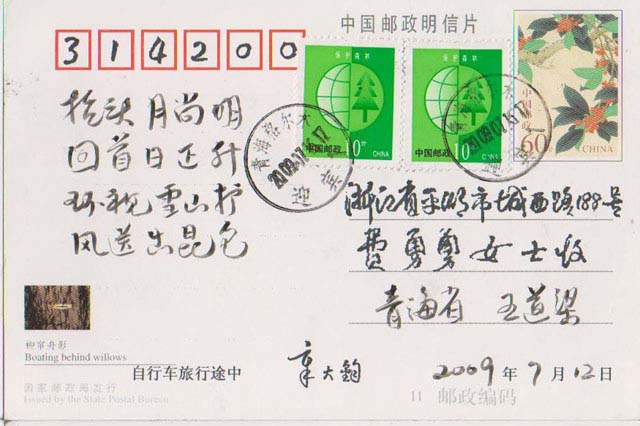 中国邮政明信片
314200
保护森林
中国邮政
10分
CHINA
保护森林
中国邮政
10分
CHINA
中国邮政
60分
CHINA
青海格尔木
2009.07.15.17
抬头月尚明
回首日正升
环视雪山护
风送出昆仑
浙江省平湖市城西路188号
费勇勇女士收
青海省 王道梁
柳帘舟影
Boating behind willows
自行车旅行途中
章大钧
2009年7月12日
国家邮政局发行
Issued by the State Postal Bureau
11 邮政编码